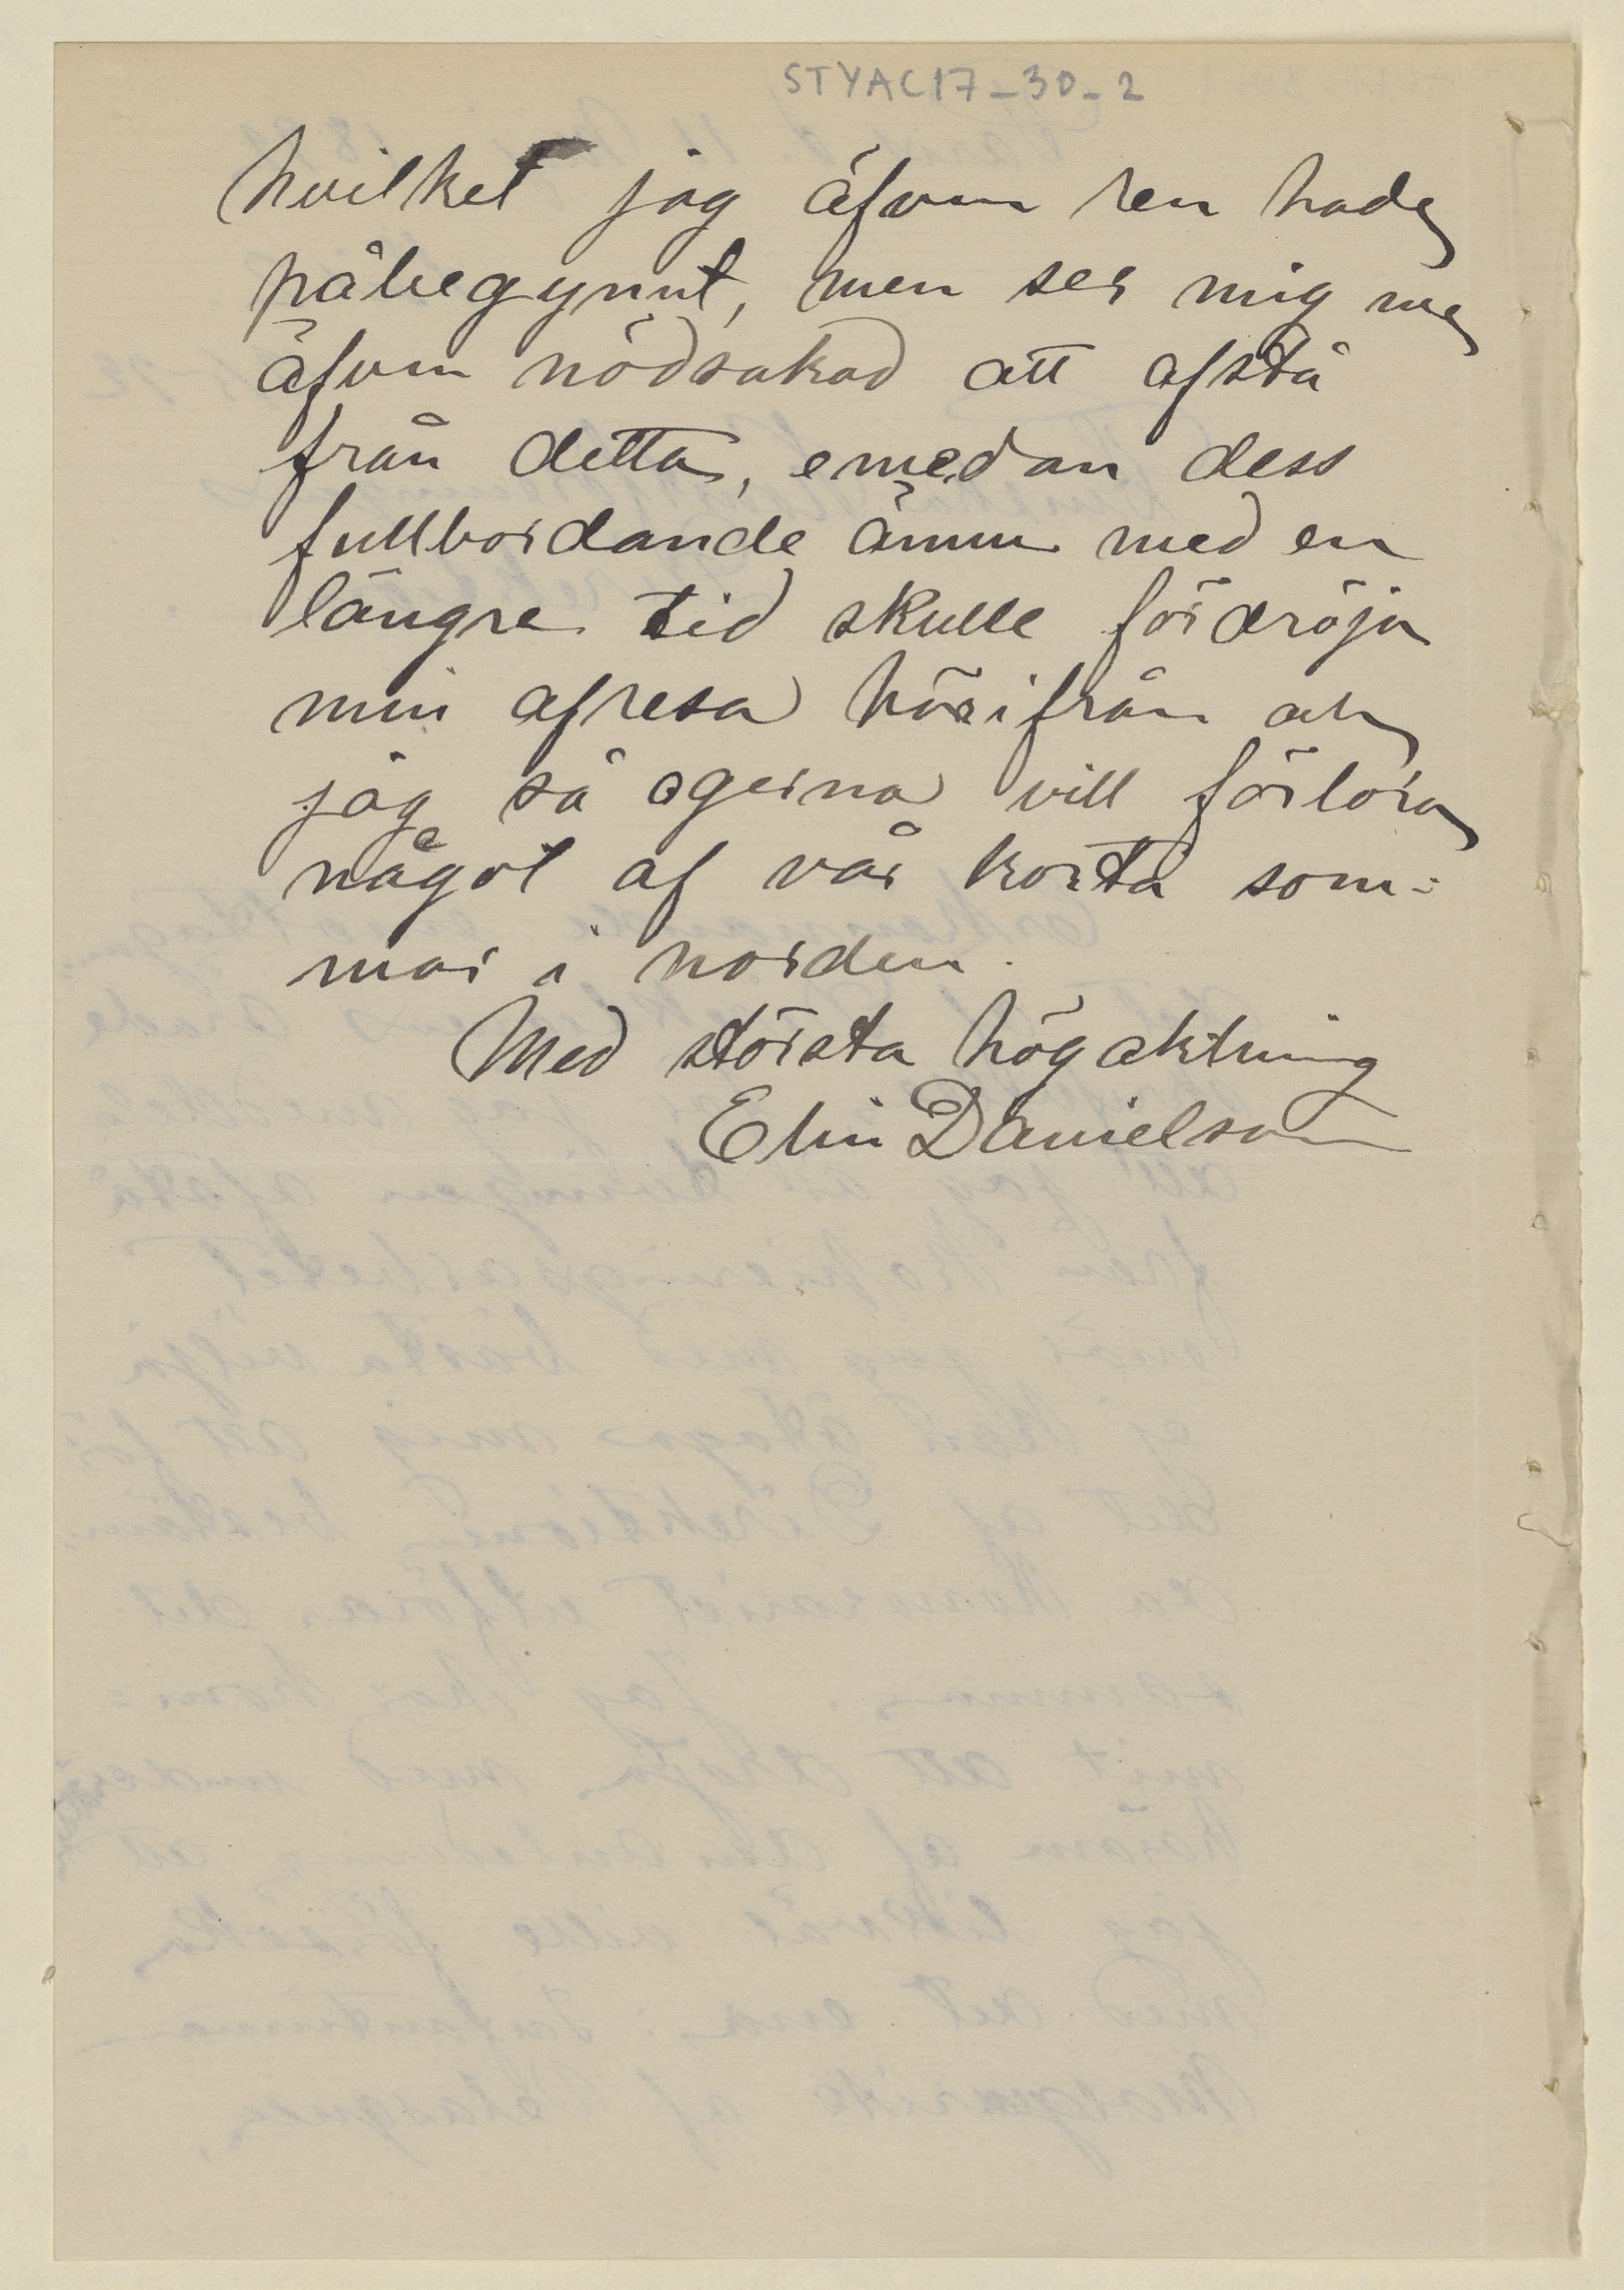 STYAC17-30-2
hvilket jag äfven ren hade
påbegynnt, men ser mig nu
äfven nödsakad att afstå
från detta, emedan dess
fullbordande ännu med en
längre tid skulle fördröja
min afresa härifrån och
jag så ogerna vill förlora
något af vår korta som-
mar i norden.
Med största högaktning
Elin Danielson